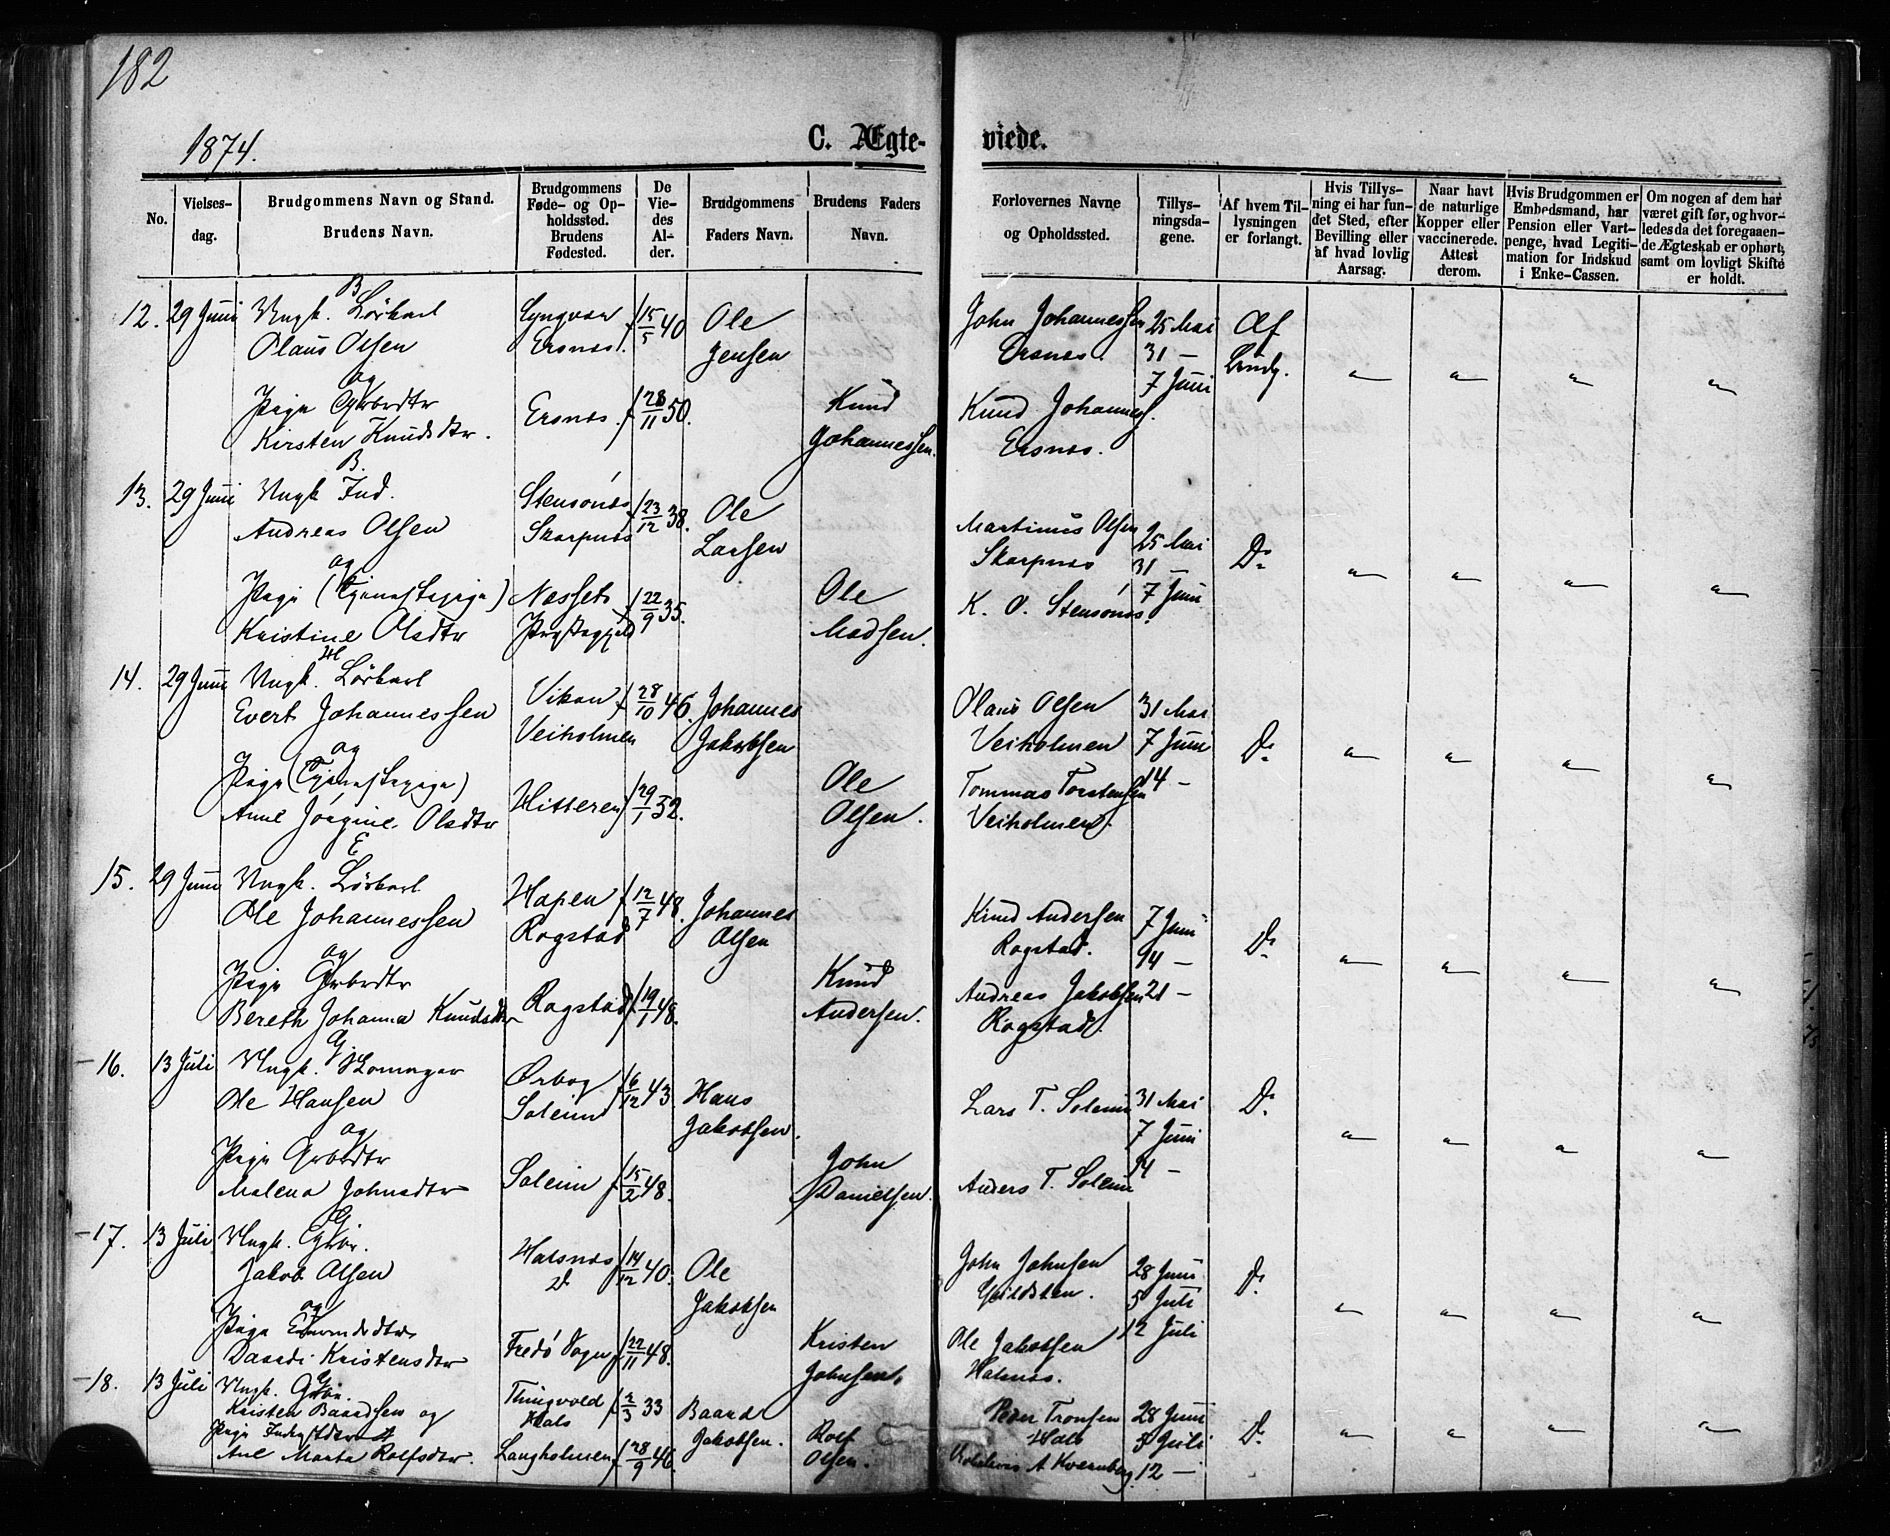 182
1874.
C. Ægteviede.
No.
Vielsesdag.
Brudgommens Navn og Stand.
Brudens Navn.
Brudgommens Føde- og Opholdssted. Brudens Fødested.
De Viedes Alder.
Brudgommens Faders Navn.
Brudens Faders Navn.
Forlovernes Navne og Opholdssted.
Tillysningsdagene.
Af hvem Tillysningen er forlangt.
Hvis Tillysning ei har fundet Sted, efter Bevilling eller af hvad lovlig Aarsag.
Naar havt de naturlige Kopper eller vaccinerede. Attest derom.
Hvis Brudgommen er Embedsmand, har Pension eller Vartpenge, hvad Legitimation for Indskud i Enke-Cassen.
Om nogen af dem har været gift før, og hvorledes da det foregaaende Ægteskab er ophørt, samt om lovligt Skifte er holdt.
B
12. 29 Juni Ungk. Lørkarl Lyngvær f 15/5 40 Ole John Johannessen 25 Mai Af
Olaus Olsen Ersnes. Jensen Ersnes. 31 —
og 7 Juni
Pige Grbrdtr Ersnes. f 28/11 50. Knud Knud Johannes.
Kirsten Knudsdtr. Johannessen. Ersnes.
B.
13. 29 Juni Ungk Ind. Stensónes f 23/12 38. Ole Martinus Olsen 25 Mai
Andreas Olsen Skarpnes Larsen Skarpnes 31 — Do
og 7 Juni
Pige (Tjenestepige) Nesset f 22/9 35. Ole K. O. Stensónes.
Kristine Olsdtr Præstegjeld Madsen.
H
14. 29 Juni Ungk. Lørkarl Vikan f 28/10 46. Johannes Olaus Olsen 31 Mai
Evert Johannessen Veiholmen Jakobsen Veiholmen 7 Juni Do
og
Pige (Tjenestepige) Hitteren f 29/1 52. Ole Tommas Torstensen 14 —
Anne Jørgine Olsdtr Olsen. Veiholmen.
E
15. 29 Juni Ungk. Lørkarl Hapen f 12/7 48. Johannes Knud Andersen 7 Juni
Ole Johannessen Rogstad Olsen Rogstad. 14 — Do
og
Pige Grbrdtr Rogstad f 19/1 48. Knud Andreas Jakobsen 21 —
Bereth Johanna Knudsdtr Andersen. Rogstad.
16. 13 Juli Ungk. Ørbog f 6/12 43 Hans Lars T. Soleim 31 Mai Do
Ole Hansen Soleim Jakobsen. 7 Juni
og
Pige Grbrdtr Soleim f 15/2 48. John Anders T. Soleim 14 —
Malena Johnsdtr Danielsen.
G
17. 13 Juli Ungk. Grbr. Halsnes f 14/12 40. Ole John Johnsen 28 Juni Do
Jakob Olsen Do Jakobsen 5 Juli
og
Pige Fredø Sogn f 22/11 48. Kristen Ole Jakobsen 12 Juli
Kristensdtr Johnsen. Halsnes.
G
18. 13 Juli Ungk. Grbr. Thingvold f 2/3 33 Baard Peder Tronsen 28 Juni Do
Kristen Baardsen og Hals Jakobsen. Hals 5 Juli
Pige Langholmen f 28/9 46. Rolf Kvernberg 12 —
Ane Marta Rolfsdtr. Olsen.